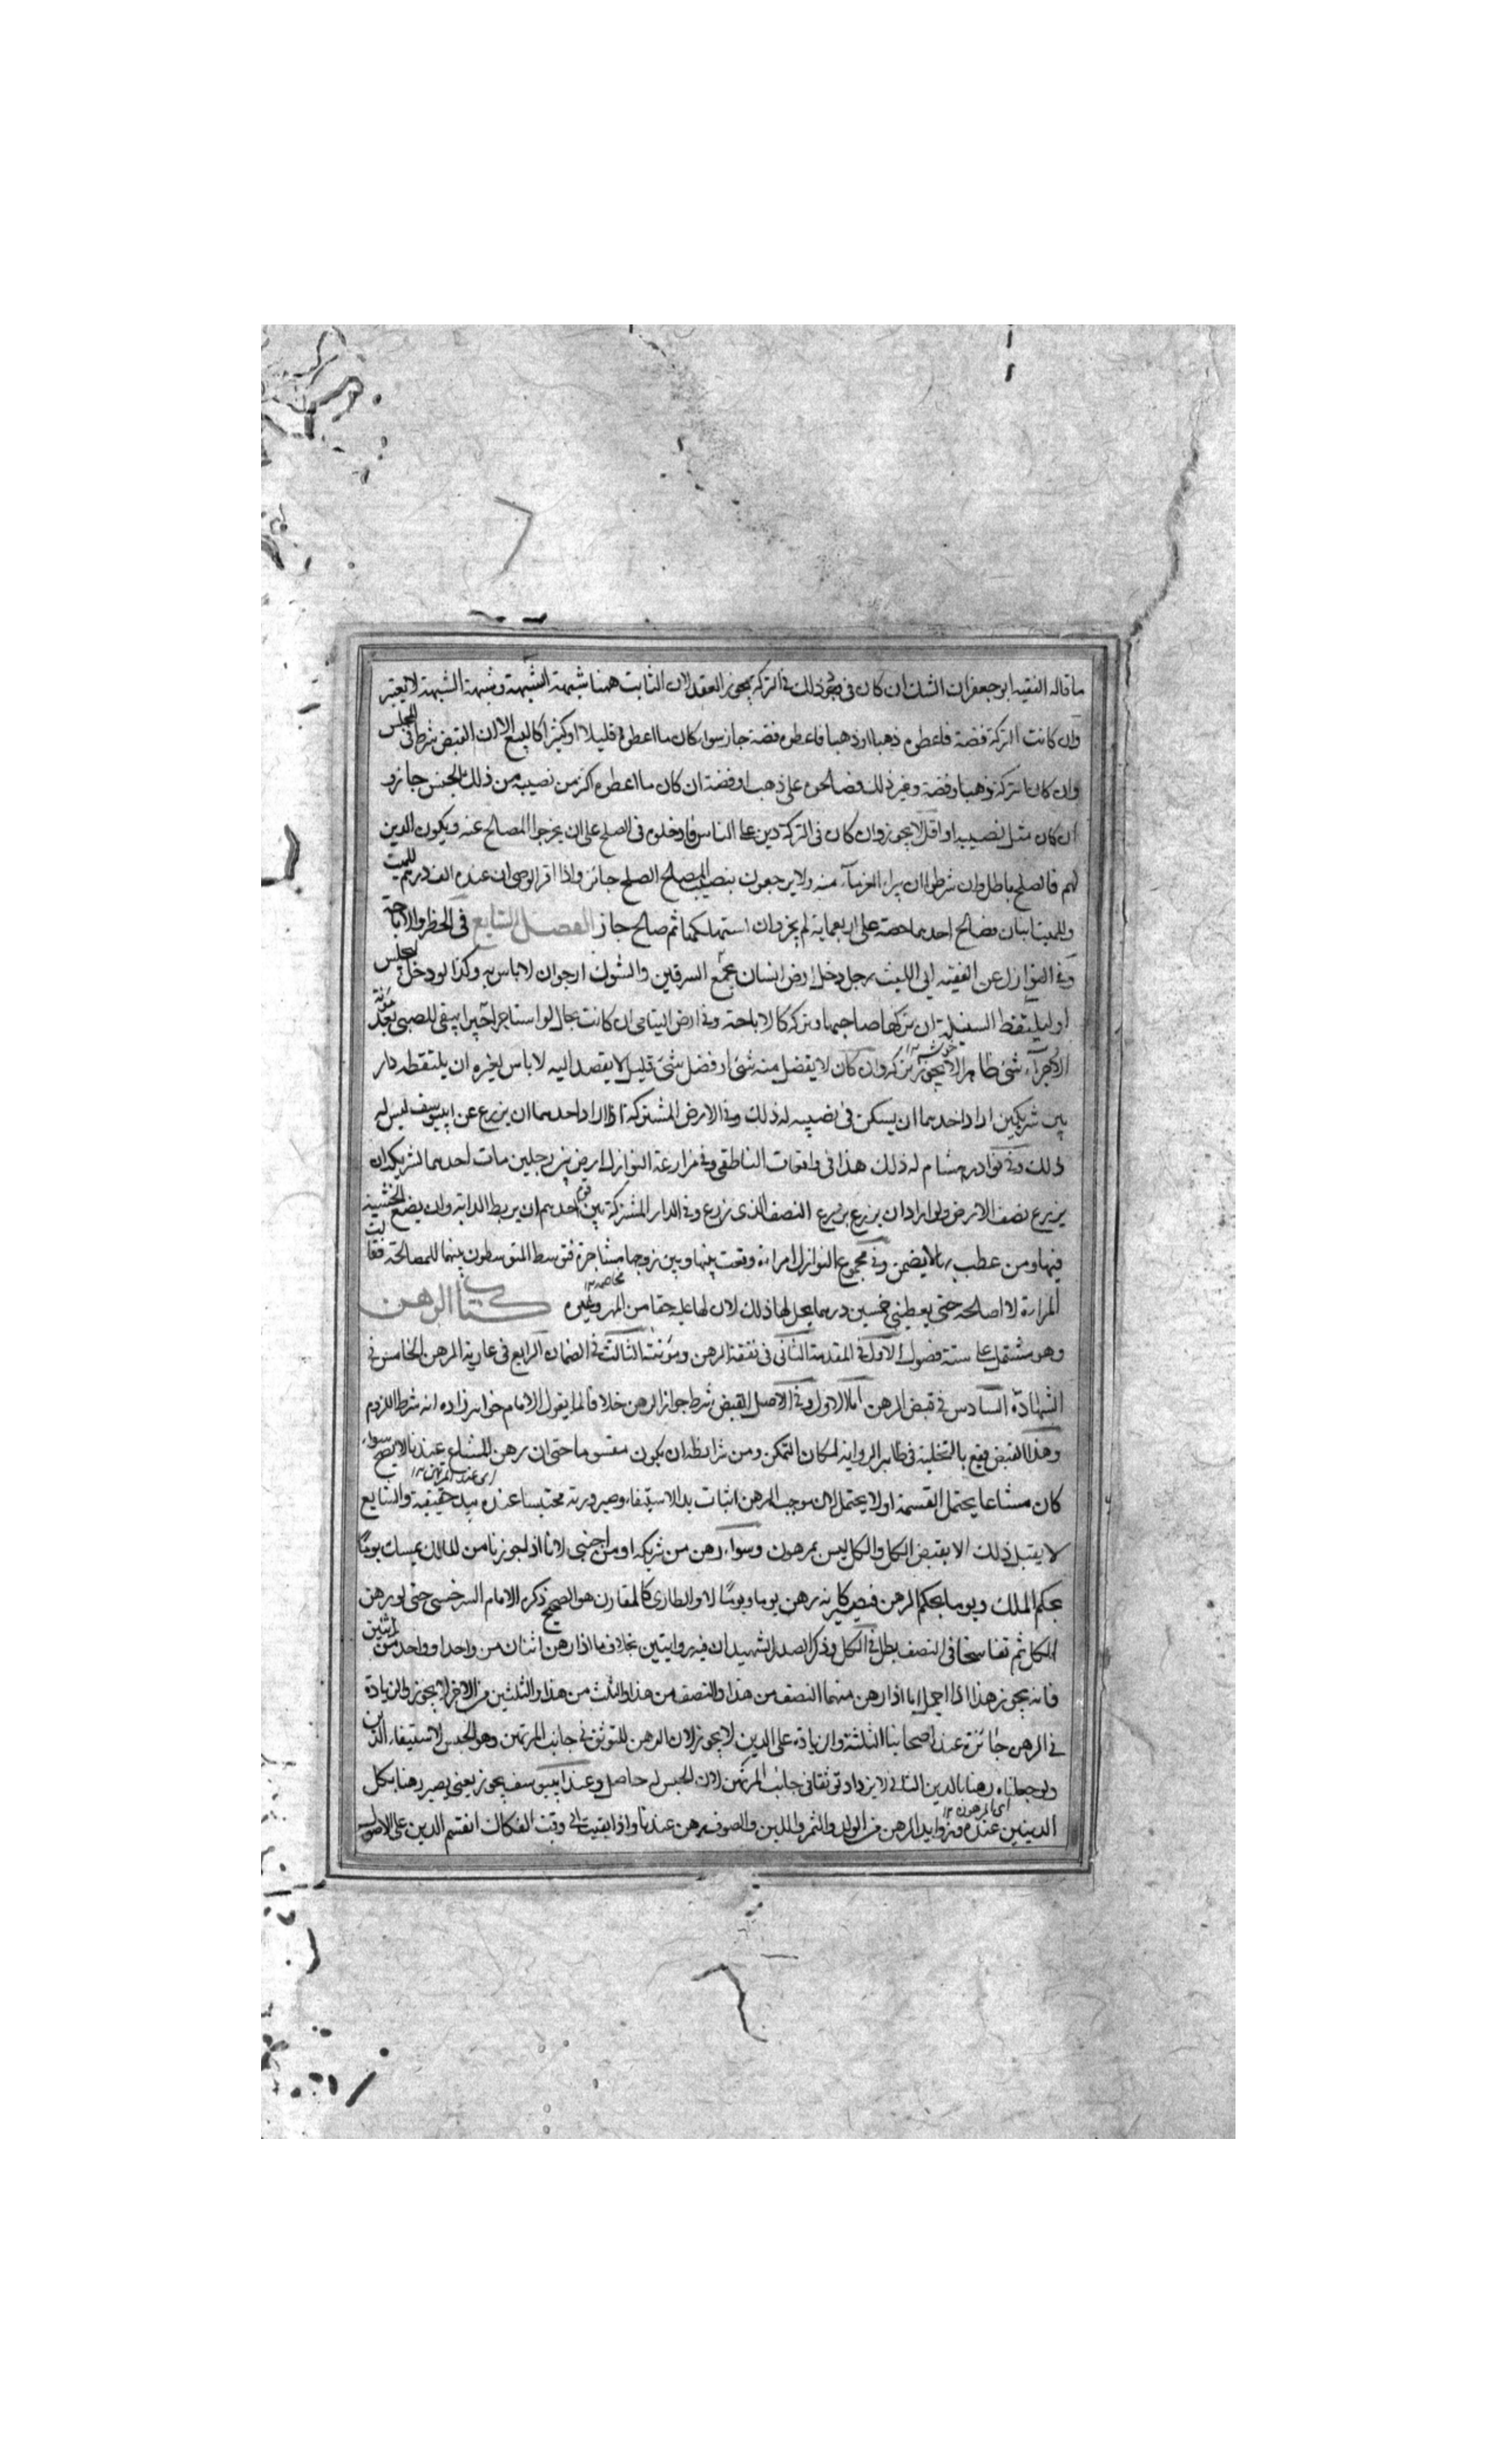 ما قاله الفقيه ابو جعفر ان الشك ان كان فى وجود ذلك فى التركة يجوز العقد لان الثابت ههنا شبهة الشبهة وشبهة الشبهة لا يعتبر
وان كانت التركة فضة فاعطوه ذهبا او ذهبا فاعطوه فضة جاز سواء كان ما اعطوه قليلا او كثيرا كالبيع الا ان القبض شرط فى المجلس
وان كان التركة ذهبا وفضة وغير ذلك فصالحوه على ذهب او فضة ان كان ما اعطوه اكثر من نصيبه من ذلك الجنس جاز و
ان كان مثل نصيبه او اقل لا يجوز وان كان فى التركة دين على الناس فادخلوه فى الصلح على ان يخرجوا المصالح عنه ويكون الدين
لهم فالصلح باطل وان شرطوا ان يبرأ الغرماء منه ولا يرجعون بنصيب المصالح الصلح جائز واذا اقر الوصى ان عنده الف درهم للميت
وللميت ابنان فصالح احدهما حصته على اربعماية لم يجز وان استهلكهما ثم صالح جاز الفصل السابع فى الحظر والاباحة
وفى النوازل عن الفقيه ابى الليث رجل دخل ارض انسان يجمع السرقين والشوك ارجو ان لا باس به وكذا لو دخل المجلس
او ليلتقط السنبلة ان تركها صاحبها وتركه كالاباحة وفى ارض اليتامى ان كانت بحال لو استاجر اجيرا يبقى للصبى بعد مؤنة
الاجراء شئ ظاهر لا يجوز تركه وان كان لا يفضل منه شئ او فضل شئ قليل لا يقصد اليه لا باس لغيره ان يلتقطه دار
خوشه ١٢
بين شريكين اراد احدهما ان يسكن فى نصيبه له ذلك وفى الارض المشتركة اذا اراد احدهما ان يزرع عن ابيوسف ليس له
ذلك وفى نوادر هشام له ذلك هذا فى واقعات الناطفى وفى مزارعة النوازل ارض بين رجلين مات احدهما لشريكه ان
يزرع نصف الارض ولو اراد ان يزرع يزرع النصف الذى زرع وفى الدار المشتركة بين قوم لاحدهم ان يربط الدابة وان يضع الخشبة
فيها ومن عطب بها لا يضمن وفى مجموع النوازل امراة وقعت بينها وبين زوجها مشاجرة فتوسط المتوسطون بينهما للمصالحة فقالت
المراة لا اصالحه حتى يعطينى خمسين درهما يحل لها ذلك لان لها عليه حقا من المهر وغيره كتاب الرهن
مخاصمه ١٢
وهو مشتمل على ستة فصول الاول فى المقدمة الثانى فى نفقة الرهن ومؤنته الثالث فى الضمان الرابع فى عارية الرهن الخامس فى
الشهادة السادس فى قبض الرهن اما الاول وفى الاصل القبض شرط جواز الرهن خلاف ما يقول الامام خواهر زاده انه شرط اللزوم
وهذا القبض يقع بالتخلية فى ظاهر الرواية لمكان التمكن ومن شرائطه ان يكون مقسوما حتى ان رهن المشاع عندنا لا يصح سواء
كان مشاعا يحتمل القسمة او لا يحتمل لان موجب الرهن اثبات يد الاستيفاء وصيرورته محتبسا عنده بيد حقيقية والشايع
اى عند المرتهن ١٢
لا يقبل ذلك الا بقبض الكل والكل ليس بمرهون وسواء رهن من شريكه او من اجنبى لانا اذا جوزنا من المالك يمسك يوما
بحكم الملك ويوما بحكم الرهن فيصير كانه رهن يوما ويوما لا والطارى كالمقارن هو الصحيح ذكره الامام السرخسى حتى لو رهن
الكل ثم تفاسخا فى النصف بطل فى الكل وذكر الصدر الشهيد ان فيه روايتين بخلاف ما اذا رهن اثنان من واحد او واحد من اثنين
فانه يجوز هذا اذا اجمل اما اذا رهن منهما النصف من هذا والنصف من هذا والثلث من هذا والثلثين من الاخر لا يجوز والزيادة
فى الرهن جائزة عند اصحابنا الثلثة والزيادة على الدين لا يجوز لان الرهن للتوثق فى جانب المرتهن وهو الحبس لاستيفاء الدين
ولو جعلناه رهنا بالدين الثانى لا يزداد توثقا فى جانب المرتهن لان الحبس له حاصل وعند ابيوسف يجوز يعنى يصير رهنا بكل
الدينين عنده وزوايد الرهن من الولد والثمر واللبن والصوف رهن عندنا واذا بقيت الى وقت الفكاك انقسم الدين على الاصول
اى المرهون ١٢